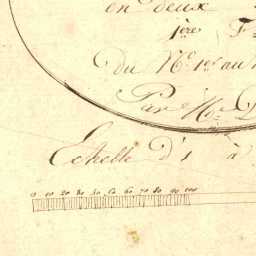 en deux
1ère F
Du N° 1er au
Par Mr D
Echelle d'1 à
0 10 20 30 40 50 60 70 80 90 100